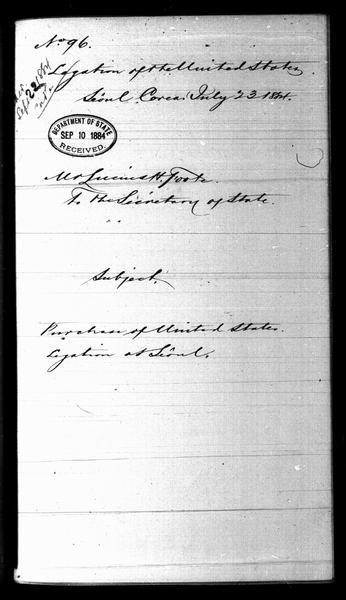 No 96.
Legation of the United States
Séoul, Corea, July 23 1884.
Sept 22 1884
DEPARTMENT OF STATE
SEP 10 1884
RECEIVED.
Mr Lucius H. Foote
To the Secretary of State.
Subject.
Purchase of United States
Legation at Séoul.